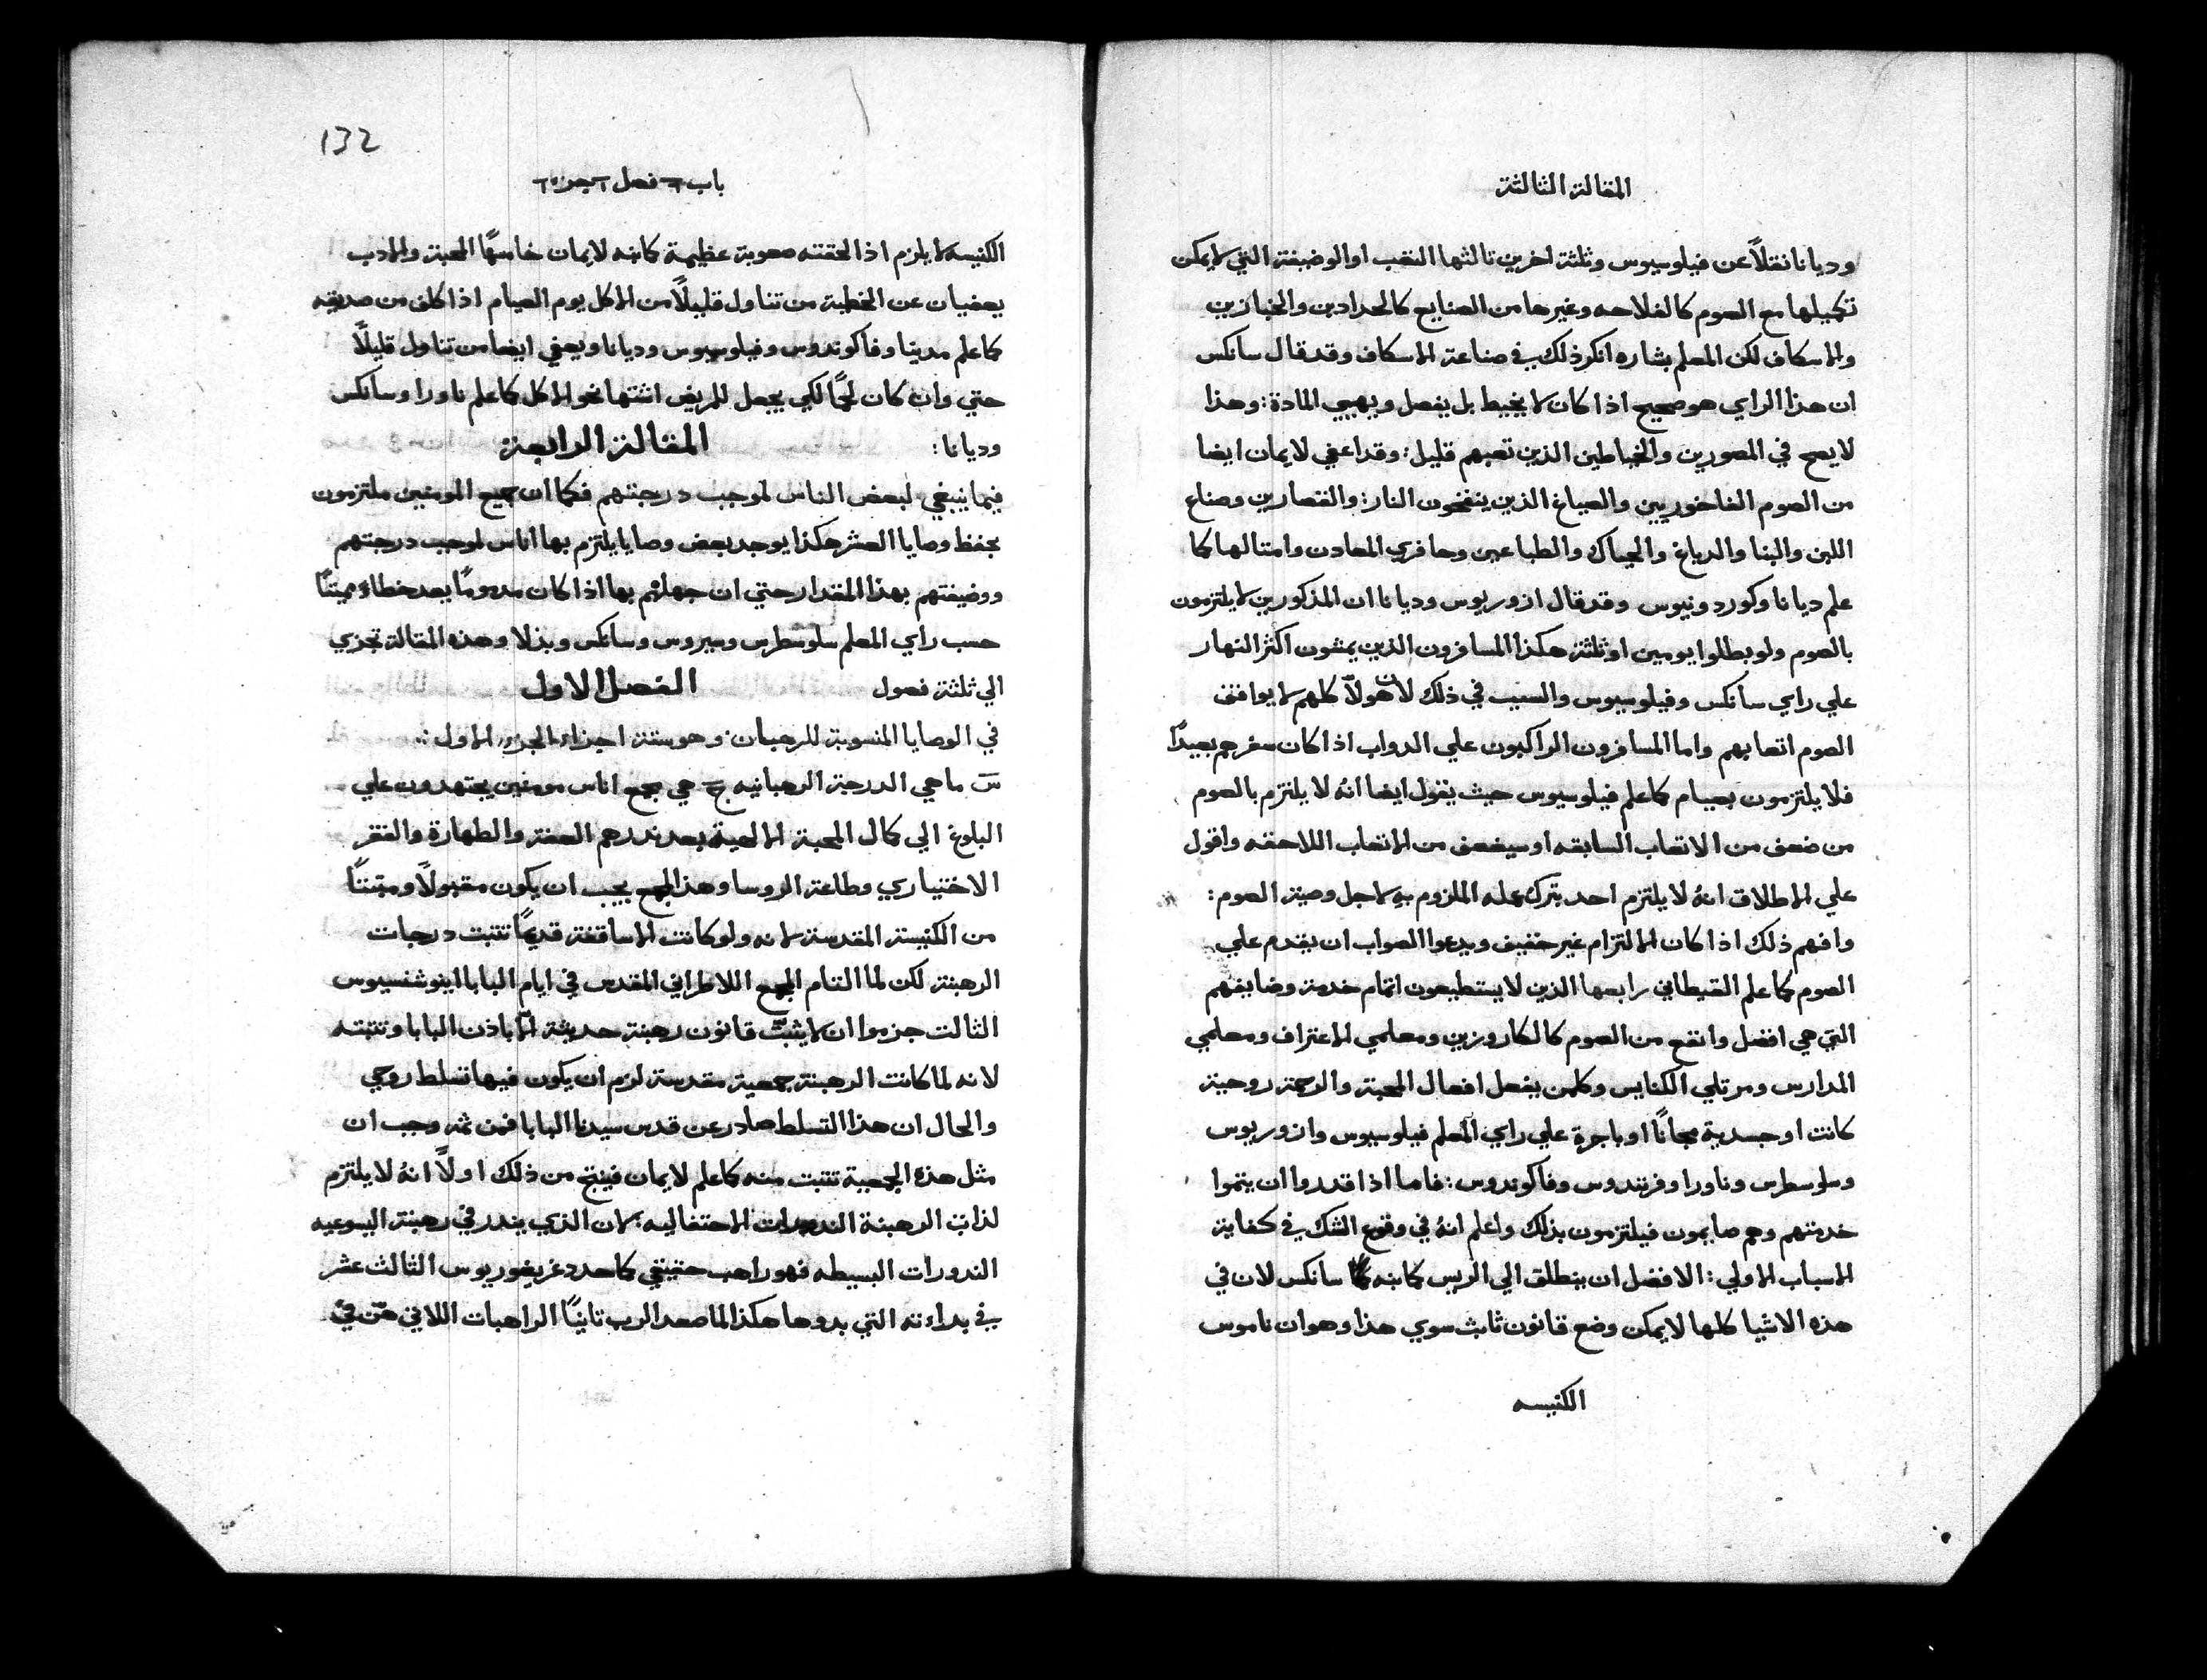 المقالة الثالثة
وديانا نقلاً عن فيلوسيوس وثلثة اخرين ثالثها التعب او الوضيفة التي لا يمكن
تكميلها مع الصوم كالفلاحه وغيرها من الصنايع كالحدادين والخبازين
والاسكاف لكن المعلم بشاره انكر ذلك في صناعة الاسكاف وقد قال سانكس
ان هذا الراي هو صحيح اذا كان لا يخيط بل يفصل ويهيي المادة: وهذا
لا يصح في المصورين والخياطين الذين تعبهم قليل: وقد اعفي لايمان ايضا
من الصوم الفاخوريين والصياغ الذين ينفخون النار: والقصارين وصناع
اللبن والبنا والدباغ والحياك والطباعين وحافري المعادن وامثالها كما
علم ديانا وكوردونيوس وقد قال ازوريوس وديانا ان المذكورين لا يلتزمون
بالصوم ولو بطلوا يومين او ثلثة هكذا المسافرون الذين يمشون اكثر النهار
علي راي سانكس وفيلوسيوس والسبب في ذلك لان هولاء كلهم لا يوافق
الصوم اتعابهم واما المسافرون الراكبون علي الدواب اذا كان سفرهم بعيداً
فلا يلتزمون بصيام كما علم فيلوسيوس حيث يقول ايضا انهُ لا يلتزم بالصوم
من ضعف من الاتعاب السابقه او سيضعف من الاتعاب اللاحقه واقول
علي الاطلاق انهُ لا يلتزم احد بترك عمله الملزوم بهِ لاجل وصية الصوم:
وافهم ذلك اذا كان الالتزام غير خفيف ويدعوا الصواب ان يقدم علي
الصوم كما علم القيطاني رابعها الذين لا يستطيعون اتمام خدمة وضايفهم
التي هي افضل وانفع من الصوم كالكاروزين ومعلمي الاعتراف ومعلمي
المدارس ومرتلي الكنايس وكلمن يفعل افعال المحبة والرحمة روحية
كانت او جسدية مجاناً او باجرة علي راي المعلم فيلوسيوس وازوريوس
وسلوسطرس وناورا وفرنندوس وفاكوندوس: فاما اذا قدروا ان يتموا
خدمتهم وهم صايمون فيلتزمون بذلك واعلم انهُ في وقوع الشك في كفاية
الاسباب الاولي: الافضل ان ينطلق الي الريس كمابنه سانكس لان في
هذه الاشيا كلها لا يمكن وضع قانون ثابث سوي هذا وهو ان ناموس
الكنيسه
132
باب فصل جزء
الكنيسه لا يلزم اذا لحقته صعوبة عظيمة كمابنه لايمان خامسهًا المحبة والادب
يعفيان عن الخطية من تناول قليلاً من الاكل يوم الصيام اذا كلف من صديقه
كما علم مدينا وفاكوندوس وفيلوسيوس وديانا ويعفي ايضا من تناول قليلاً
حتي وان كان لحماً لكي يجعل للمريض اشتها نحو الاكل كما علم ناورا وسانكس
وديانا: المقالة الرابعة
فيما ينبغي لبعض الناس لموجب درجتهم فكما ان جميع المومنين ملتزمون
بحفظ وصايا العشر هكذا يوجد بعض وصايا يلتزم بها اناس لموجب درجتهم
ووضيفتهم بهذا المقدار حتي ان جهلهم بها اذا كان مذموماً يعد خطاء مميتاً
حسب راي المعلم سلوسطرس وسيروس وسانكس وبذلا وهذه المقالة تجزي
الي ثلثة فصول الفصل الاول
في الوصايا المنسوبة للرهبان وهو ستة اجزاء الجزء الاول:
س ما هي الدرجة الرهبانيه ج هي مجمع اناس مومنين يجتهدون علي
البلوغ الي كمال المحبة الالهية بعد نذرهم العفة والطهارة والفقر
الاختياري وطاعة الروسا وهذا الجمع يجب ان يكون مقبولاً ومثبتاً
من الكنيسة المقدسة لانه ولو كانت الاساقفة قديماً تثبت درجات
الرهبنة لكن لما التام المجمع اللاطراني المقدس في ايام البابا اينوشنسيوس
الثالث جزموا ان لا يثبت قانون رهبنة حديثة الا باذن البابا وتثبته
لانه لما كانت الرهبنة جمعية مقدسة لزم ان يكون فيها تسلط روحي
والحال ان هذا التسلط صادر عن قدس سيدنا البابا فمن ثم وجب ان
مثل هذه الجمعية تثبت منه كما علم لايمان فينتج من ذلك اولاً انهُ لا يلتزم
لذات الرهبنة الندورات الاحتفاليه: لان الذي ينذر في رهبنة اليسوعيه
الندورات البسيطه فهو راهب حقيقي كما حدد غريغوريوس الثالث عشر
في براءته التي بدوها هكذا لما صعد الرب ثانيًا الراهبات اللاتي هن في